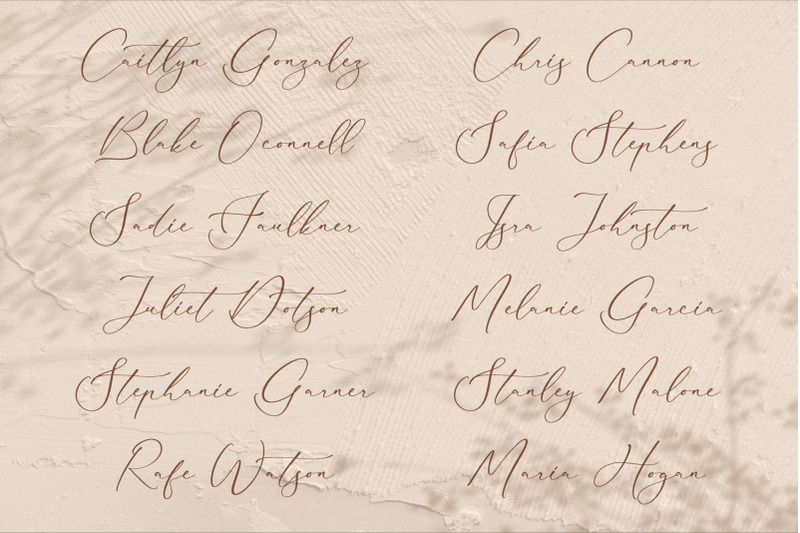 Caitlyn Gonzalez
Blake Oconnell
Sadie Faulkner
Juliet Dotson
Stephanie Garner
Rafe Watson
Chris Cannon
Safia Stephens
Isra Johnston
Melanie Garcia
Stanley Malone
Maria Hogan